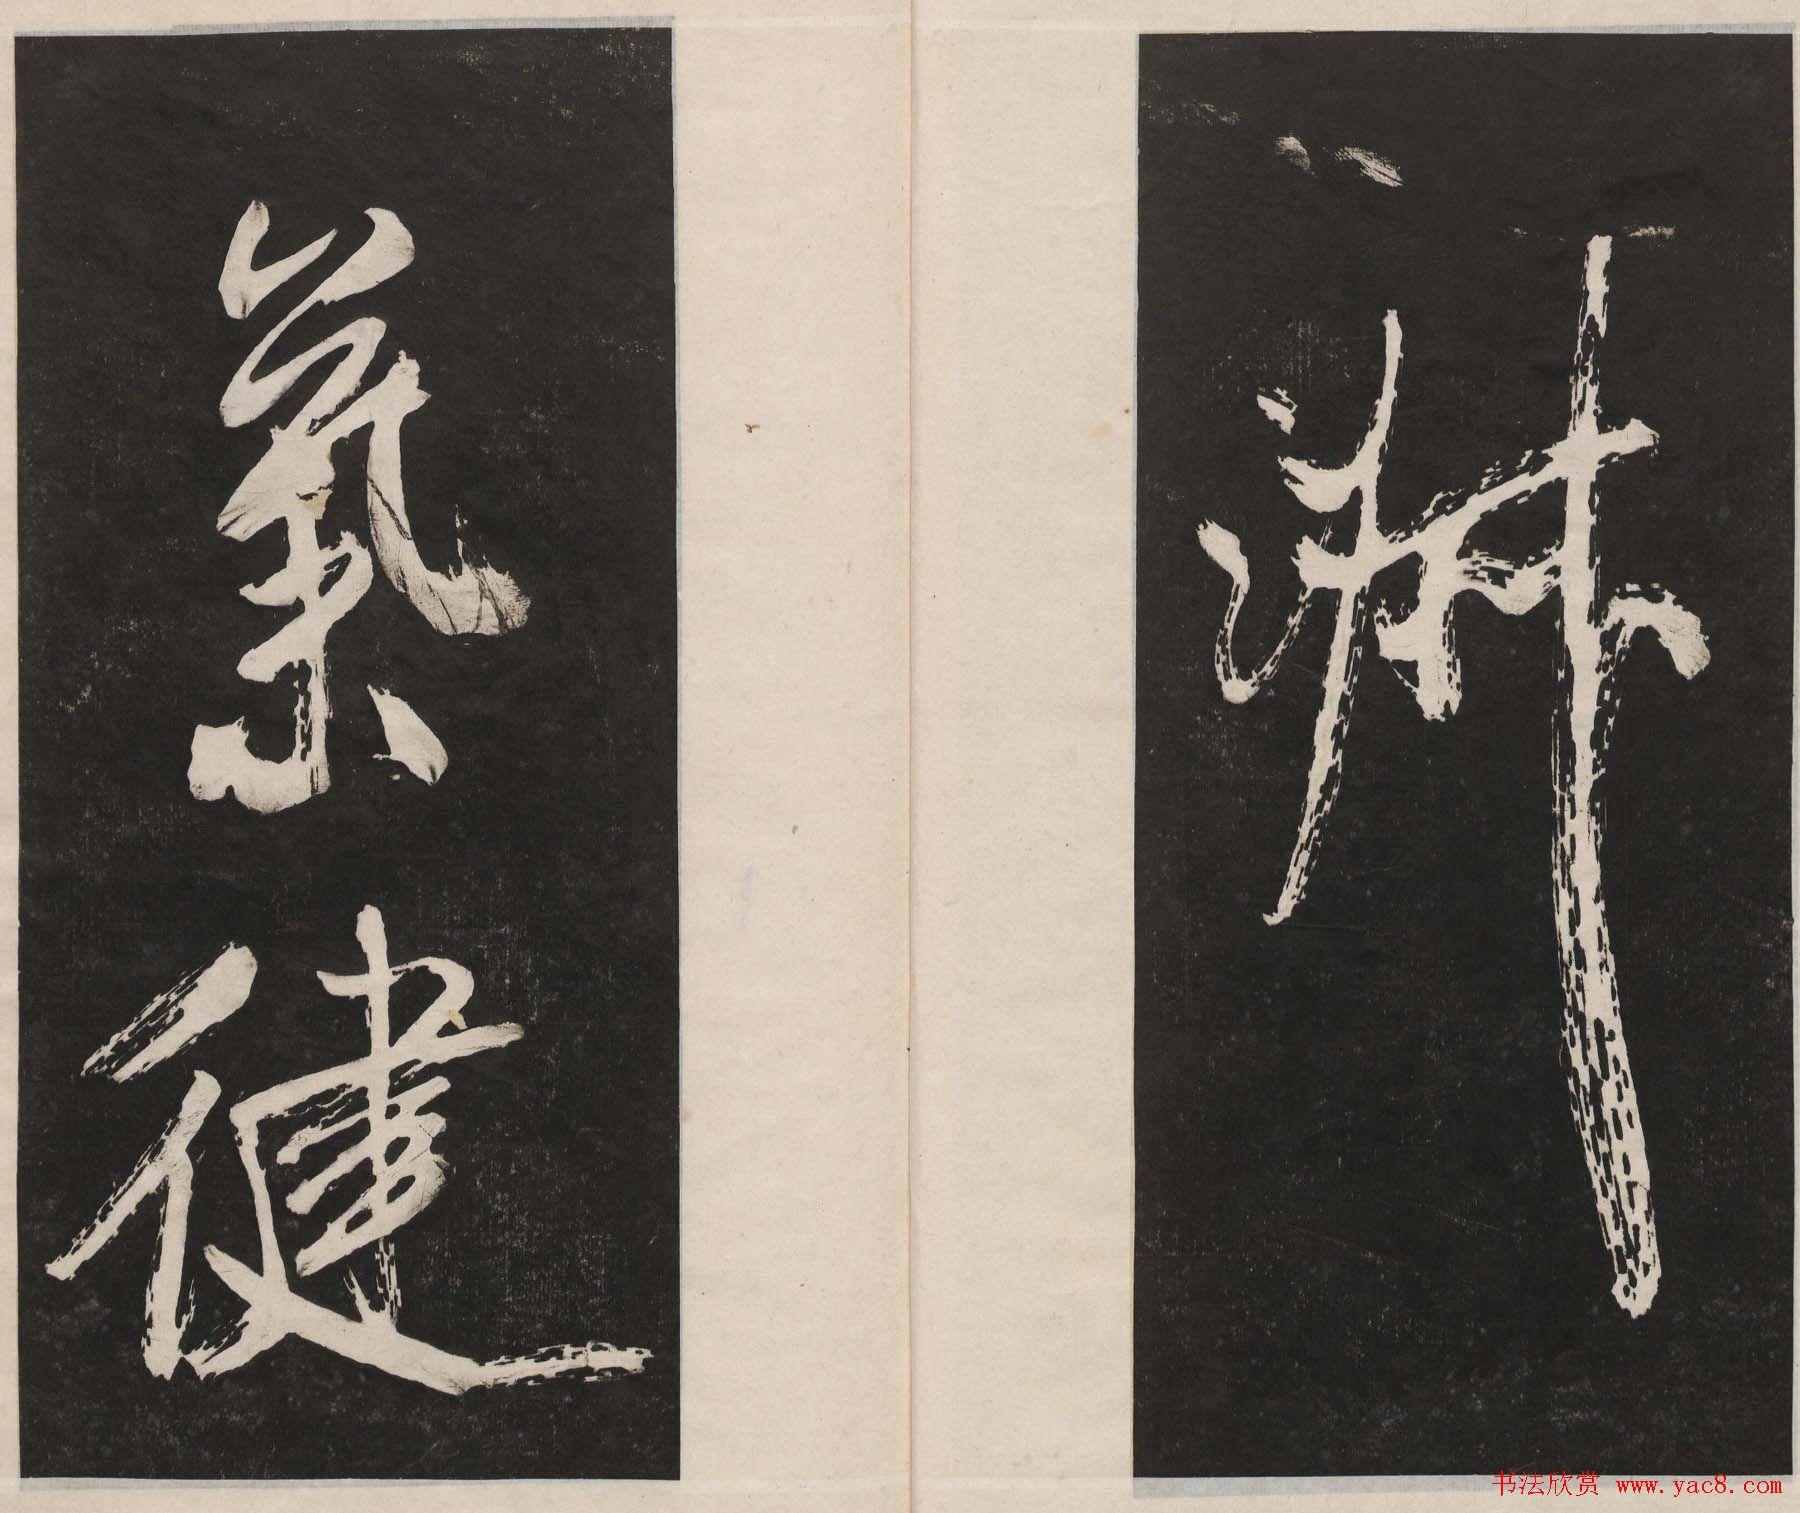 淋
氣健
书法欣赏 www.yac8.com